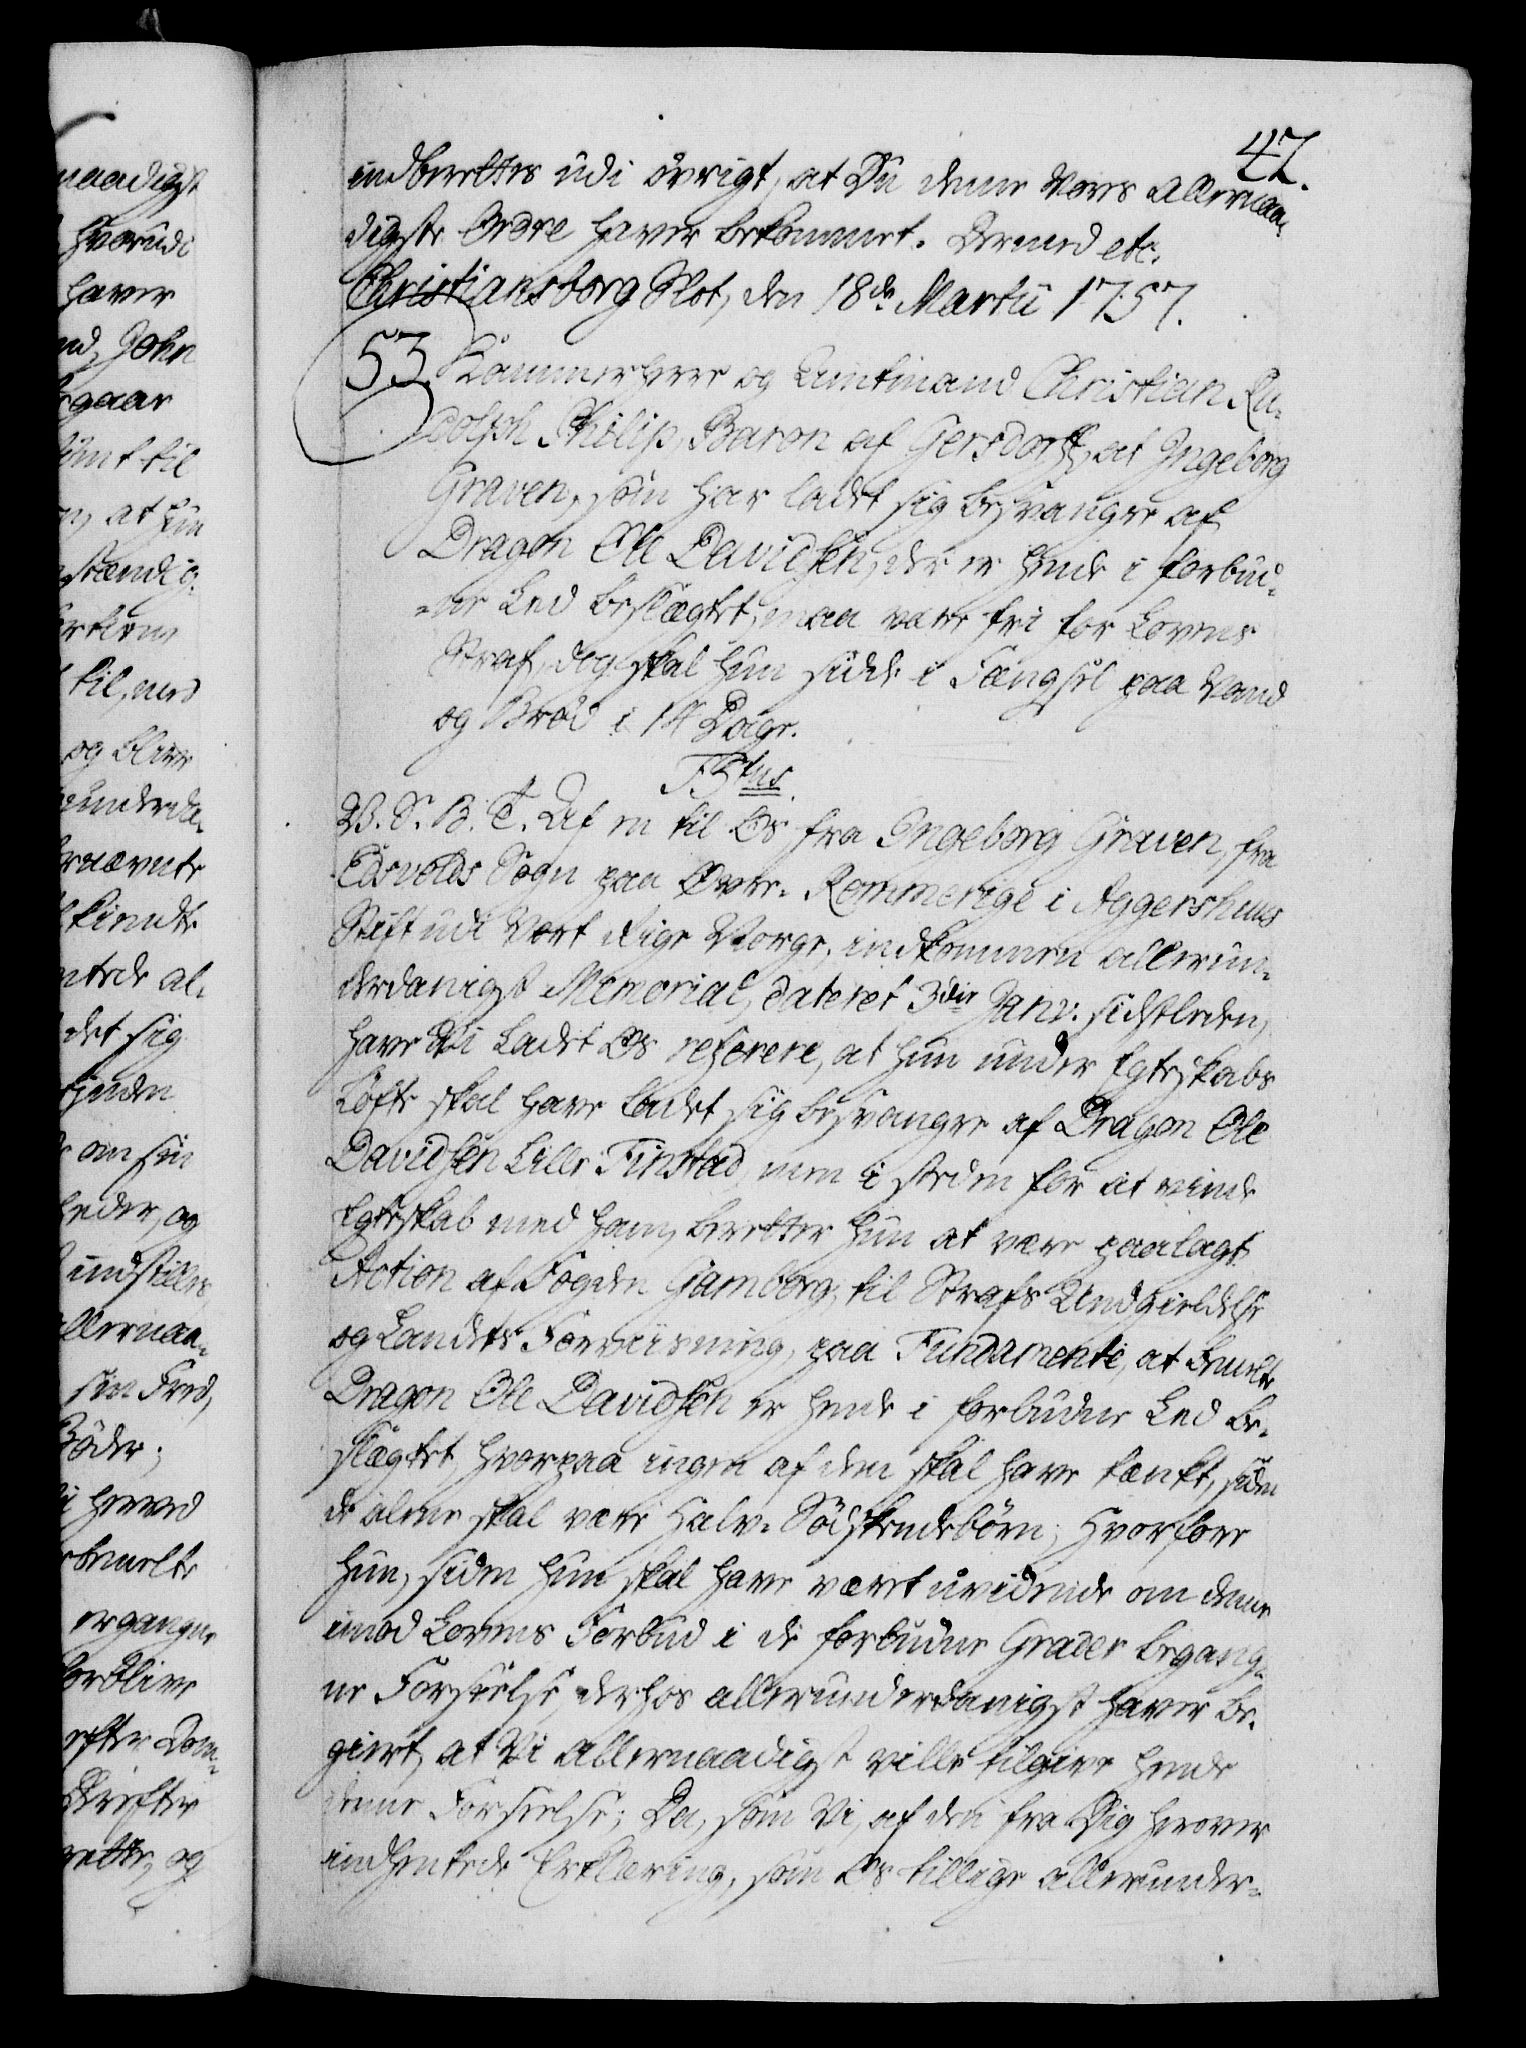 42.
indberettes udi övrigt, at Du denne Vores Allernaa-
digste Ordre haver bekommet. Dermed etc.
Christiansborg Slot, den 18de Martii 1757.
53. Kammerherre og Amtmand Christian Ru-
dolph Philip, Baron af Gersdorff, at Ingeborg
Graven, som har ladet sig besvangre af
Dragon Ole Davidsen, der er hende i forbud-
ne Led beslægtet, maa være fri for Lovens
Straf, dog skal hun sidde i Fængsel paa Vand
og Bröd i 14 Dage.
F5tus
V. S. B. T. Af en til Os fra Ingeborg Graven, fra
Edsvolds Sogn paa Övre-Rommerige i Aggershuus
Stift udi Vort Rige Norge, indkommen allerun-
derdanigst Memorial, dateret 3die Janv: sidstleden,
have Vi ladet Os referere, at hun under Egteskabs
Löfte skal have ladet sig besvangre af Dragon Ole
Davidsen Lille Finstad, men i steden for at vinde
Egteskab med ham, beretter hun at være paalagt
Action af Fogden Gamborg, til Strafs Undgieldelse
og Landets Forviisning, paa Fundamente, at bemelte
Dragon Ole Davidsen er hende i forbudne Led be-
slægtet, hvorpaa ingen af dem skal have tænkt, siden
de alene skal være Halv-Södskendebörn; hvorfore
hun, siden hun skal have været uvidende om denne
imod Lovens Forbud i de forbudne Grader begang-
ne Forseelse, derhos allerunderdanigst haver be-
giert, at Vi allernaadigst ville tilgive hende
denne Forseelse; Da, som Vi, af den fra Dig herover
indhentede Erklæring, som Os tillige allerunder-
naadigst
hvorudi
haver
John
til
at hun
til, med
og blive
det sig
om sin
og
indstille
allernaa-
sin Fred,
Böder;
herved
bemelte
ergangne
forblive
efter Dom-
og